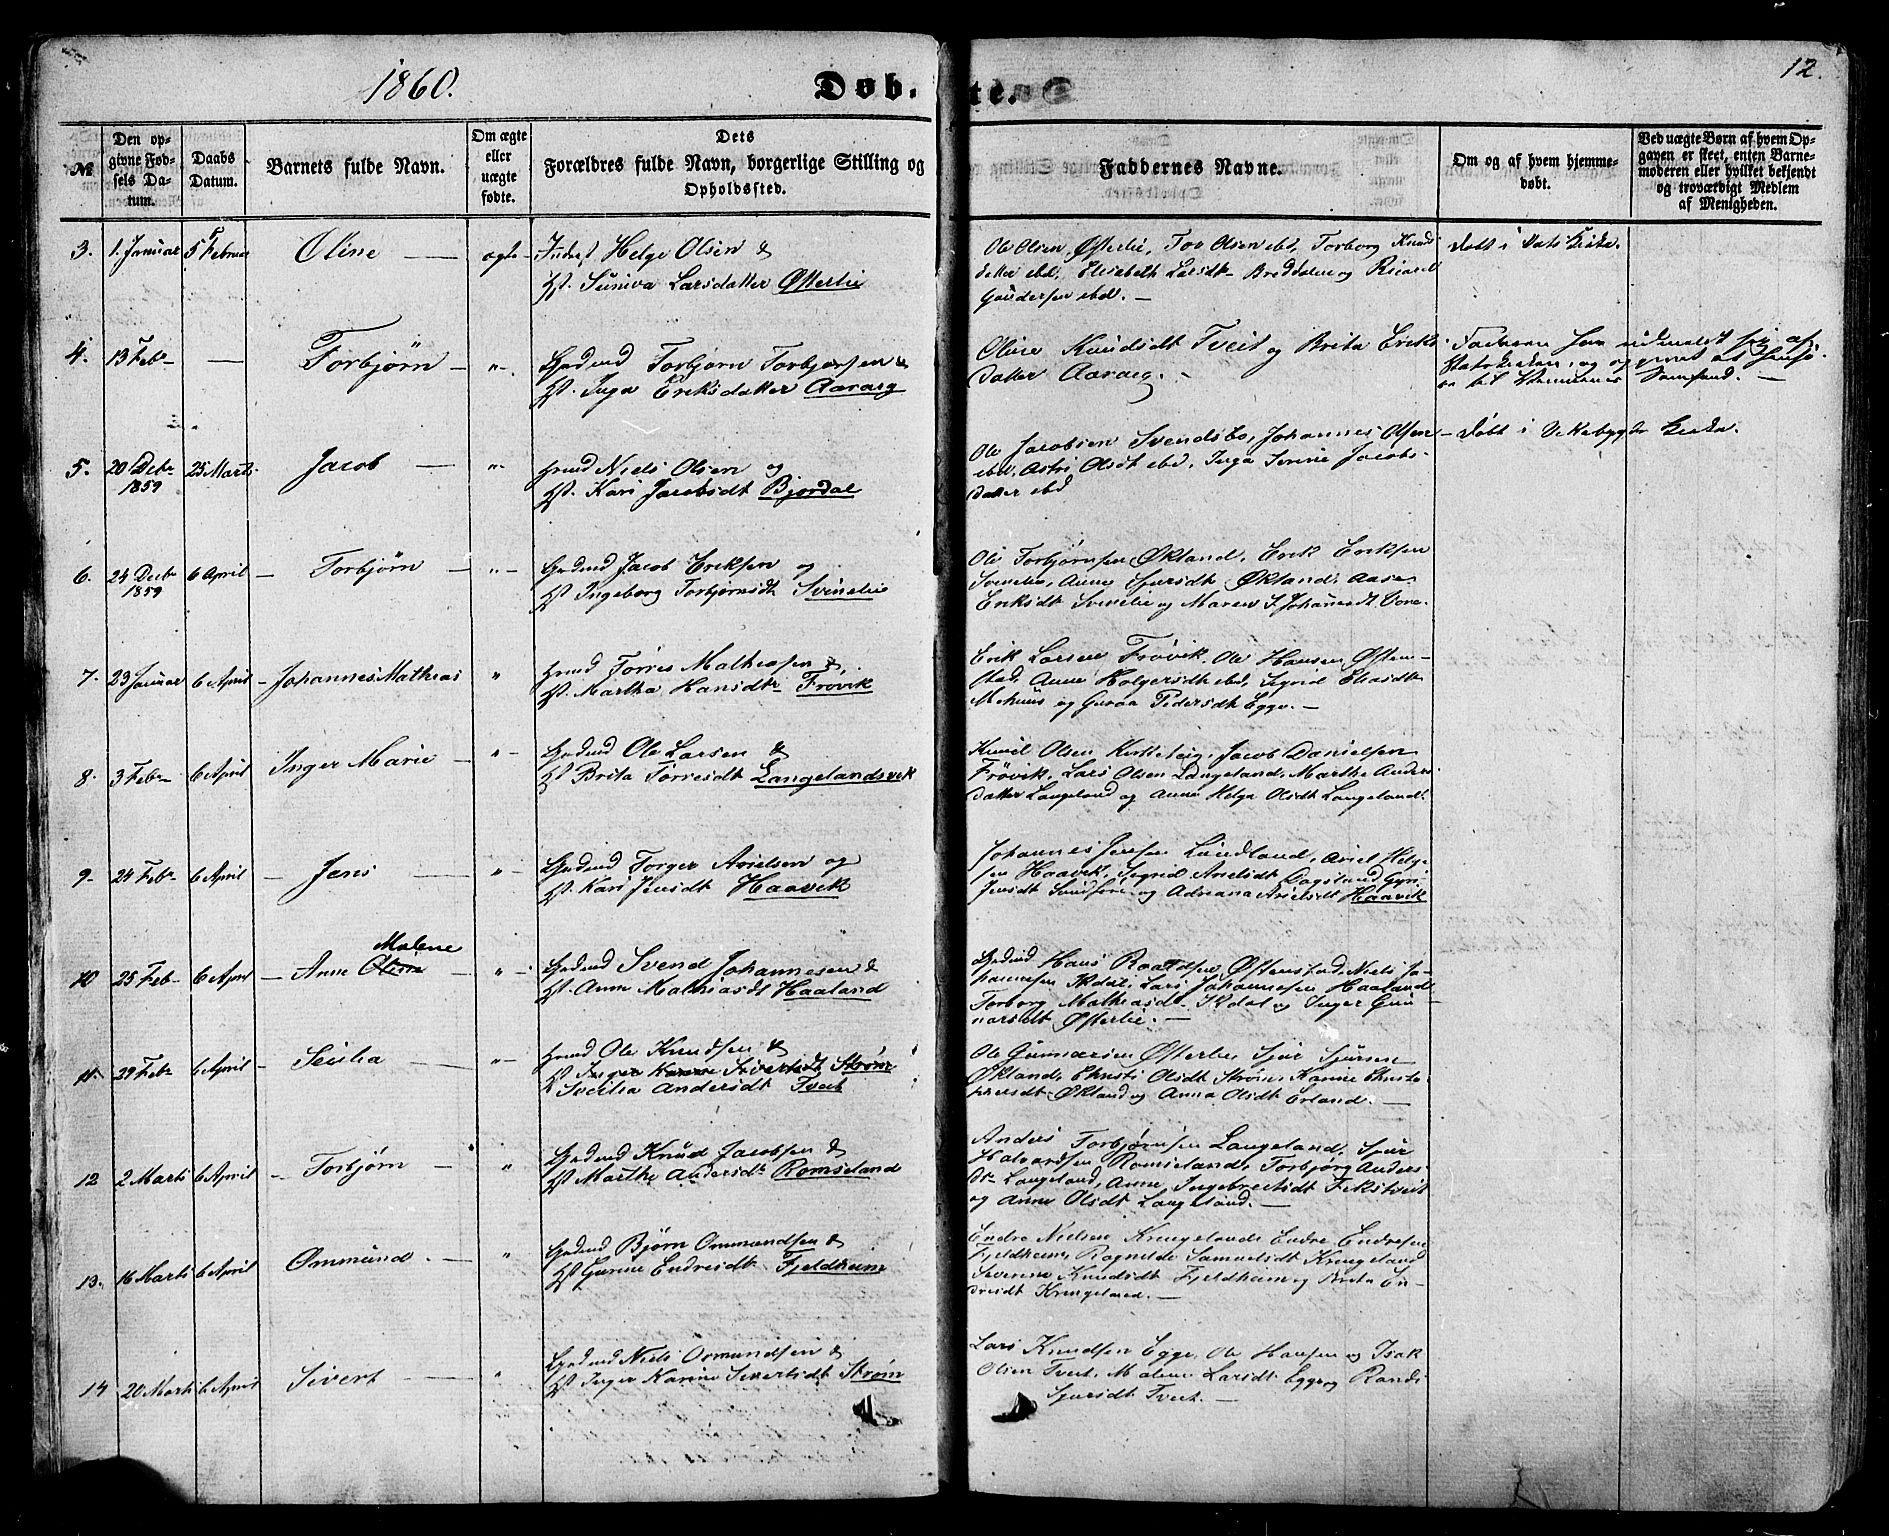 1860.
Døb.
te.
12.
№
Den op-
givne Fød-
sels Da-
tum.
Daabs
Datum.
Barnets fulde Navn.
Om ægte
eller
uægte
fødte.
Dets
Forældres fulde Navn, borgerlige Stilling og
Opholdssted.
Faddernes Navne.
Om og af hvem hjemme-
døbt.
Ved uægte Børn af hvem Op-
gaven er skeet, enten Barne-
moderen eller hvilket bekjendt
og troværdigt Medlem
af Menigheden.
3. 1. Januar 5 Februar Oline ægte
Helge Olsen &
Suniva Larsdatter Østerlie
Ole Olsen Østerlie, Tor Olsen ebd, Torborg Knuds
datter ebd. Elisabeth Larsdtr
Gaudersen ebd.
døbt i Vats Kirke.
4. 13 Febr Torbjørn
Torbjørn Torbjørnsen &
Inga Eriksdatter Aaraeg
Oline Knudsdt Tveit og Brita Eriks
datter Aaraeg.
Faderen har udmeldt sig af
Statskirken, og
Samfund.
5. 20 Debr 1859 25 Marts Jacob
Niels Olsen og
Kari Jacobsdt Bjordal
Ole Jacobsen Svendsbø, Johannes Olsen
ebd, Astri Olsdt ebd, Inga Serine Jacobs-
datter ebd
døbt i Vikebygds Kirke.
6. 24 Decbr 1859 6 April Torbjørn
Jacob Eriksen og
Ingeborg Torbjørnsdt Svinelie
Ole Torbjørnsen Økland, Erik Eriksen
Svinelie, Anne Sjursdt Økland, Aase
Eriksdt Svinelie og Maren
7. 23 Januar 6 April Johannes Mathias
Tørres Mathiassen &
Martha Hansdtr Frøvik
Erik Larsen Frøvik, Ole Hansen Østen-
stad, Anne Holgersdt ebd, Sigrid Eliasdt
Mehuus og Guroa Pedersdt Egge.
8. 3 Febr 6 April Inger Marie
Ole Larsen &
Brita Torresdt Langelandsvik
Knud Olsen Kirketeig, Jacob Danielsen
Frøvik, Lars Olsen Langeland, Marthe Anders
datter Langeland og Anne Helga Olsdt Langeland.
9. 24 Febr 6 April Jens
Torger Arielsen og
Kari Jensdt Haavik
Johannes Jensen Lindland, Ariel Helge
sen Haavik, Sigrid Arielsdt Dagsland, Gyri
Jensdt og Adriana Arielsdt Haavik
Malene
10 25 Feb 6 April Anne Oline
Svend Johannesen &
Anne Mathiasdt Haaland
Hans Roaldsen Østenstad, Niels Jo-
hannesen Lars Johannesen Haaland
Torborg Mathiasdt og Inger Gun
narsdt Østerlie.
11. 29 Febr 6 April Sicilia
Ole Knudsen &
Inger Karine Sivertsdt Strøm
Sicilia Andersdt Tveit
Ole Gunnarsen Østerlie, Sjur Sjursen
Økland, Christi Olsdt Strøm, Karine Christo-
phersdt Økland og Anna Olsdt Erland.
12 2 Marts 6 April Torbjørn
Knud Jacobsen &
Marthe Andersdtr Romseland
Anders Torbjørnsen Langeland, Sjur
Halvardsen Romseland, Torbjørg Anders
dtr Langeland, Anne Ingebretsdt Fikstveit
og Anne Olsdt Langeland.
13. 16 Marts 6 April Ommund
Bjørn Ommundsen &
Gurine Endresdt Fjeldheim
Endre Nielsen Kringeland, Endre Endresen
Fjeldheim, Ragnilde Samuelsdt Kringeland
Severine Knudsdt Fjeldheim og Brita En
dresdt Kringeland.
14 20 Marts 6 April Sivert
Niels Osmundsen &
Inger Karine Sivertsdt Strøm
Lars Knudsen Egge, Ole Hansen og Isak
Olsen Tveit, Malene Larsdt Egge og Randi
Sjursdt Tveit.